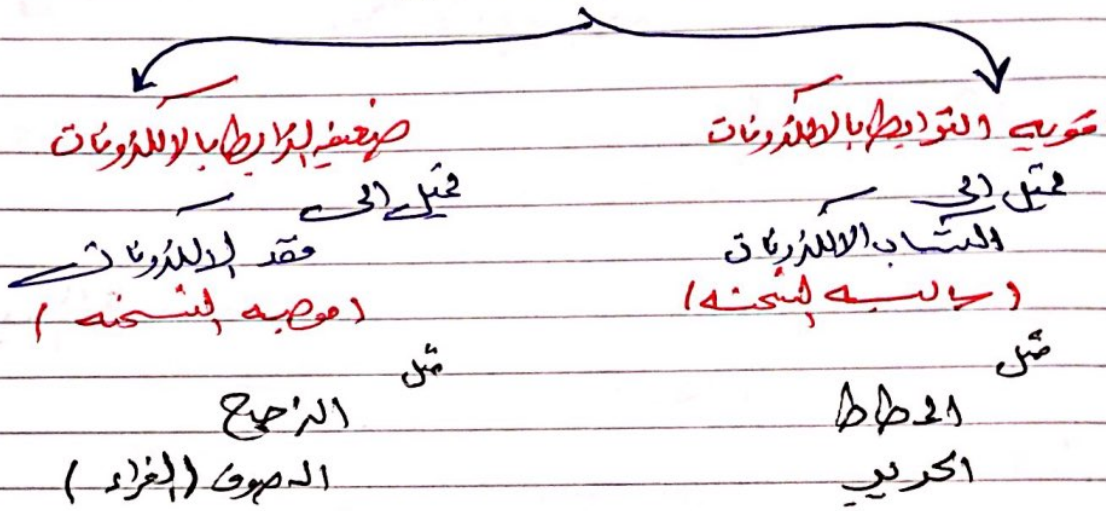 قويه الترابط بالالكترونات
تميل الى
اكتساب الالكترونات
(سالبه الشحنه)
مثل
المطاط
الحرير
ضعيفه الترابط بالالكترونات
تميل الى
فقد الالكترونات
(موجبه الشحنه)
مثل
الزجاج
الصوف (الفراء)